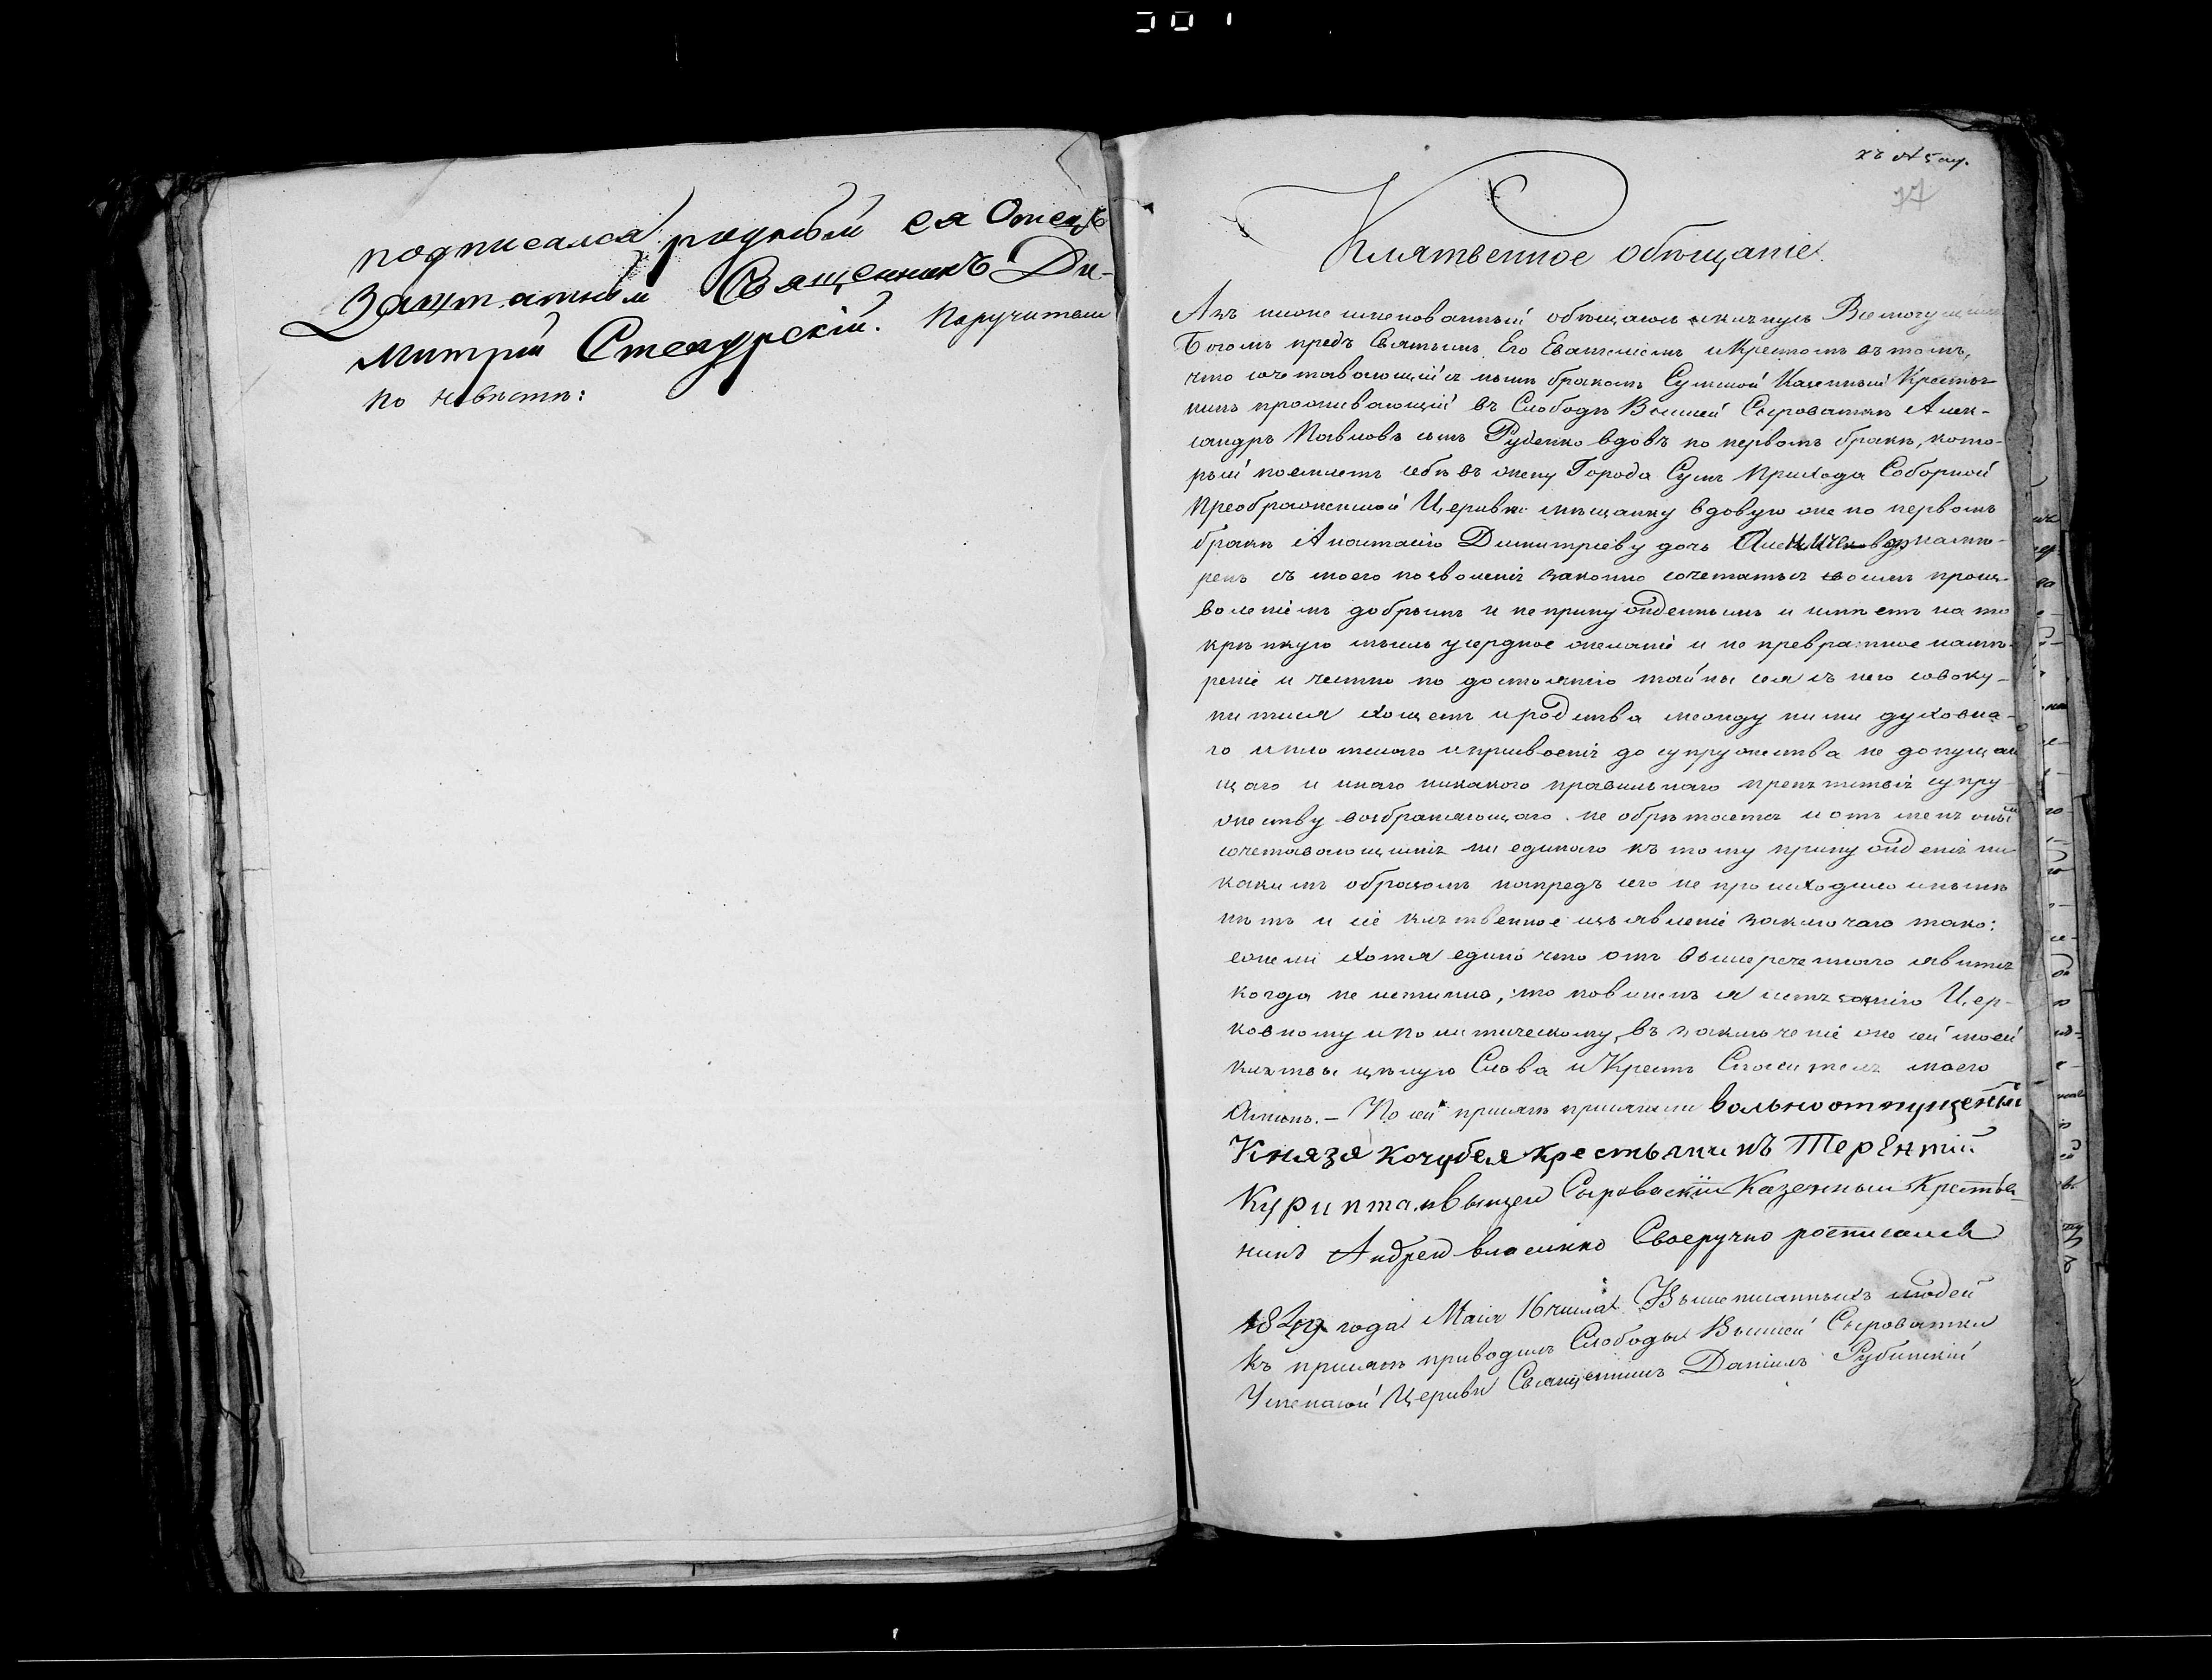 подписался родный ея Отецъ
Заштатный Священникъ Ди-
митрій Поручители
по невѣсте:
77
Клятвенное обѣщаніе
Азъ ниже имянованный обѣщаюсь и кленусь Всемогущимъ
Богомъ предъ Святымъ Его Евангелиемъ и Крестомъ въ томъ,
что сочетавающийся нынѣ бракомъ Сумской Казенный Крестья-
нинъ проживающій въ Слободѣ Вышней Сыроваткѣ Алек-
сандръ Павловъ сынъ Руденко вдовъ по первомъ бракѣ, кото-
рый поемлетъ себѣ въ жену Города Сумъ Прихода Соборной
Преображенской Церкви мѣщанку вдовую же по первомъ
бракѣ Анастасію Димитріеву дочь намѣ-
ренъ съ моего позволенія законно сочетаться своимъ произ-
воленіемъ добрымъ и непринужденнымъ и имѣетъ на то
крѣпкую мысль усердное желаніе и не превратное намѣ-
реніе и честно по достоянію тайны сея съ нею совоку-
питися хощетъ и родства между ними духовна-
го и плотскаго и присвоенія до супружества не допущаю
щаго и инаго никакого правильнаго препятствія супру
жеству возбраняющаго не обрѣтается и отъ мене оный
сочетавающимся ни единаго къ тому принужденія ни
какимъ образомъ напредъ сего не происходило и нынѣ
нѣтъ и сіе клятвенное изъявленіе заключаю тако:
ежели хотя едино что отъ вышереченнаго явится
когда не истинно, то повиненъ я истязанію Цер-
ковному и политическому, въ заключеніе же сей моей
клятвы цѣлую Слова и Крестъ Спасителя моего
Аминь. — По сей присягѣ присягали вольноотпущеный
Князя Кочубея крестьянинъ Терентій
Сыроватки Казенный Крестья-
нинъ Андрей Власенко Своеручно росписался
года Маія 16 числа. Вышеписанныхъ людей
къ присягѣ приводилъ Слободы Вышней Сыроватки
Успенской Церкви Священникъ Даніилъ Рубинскій